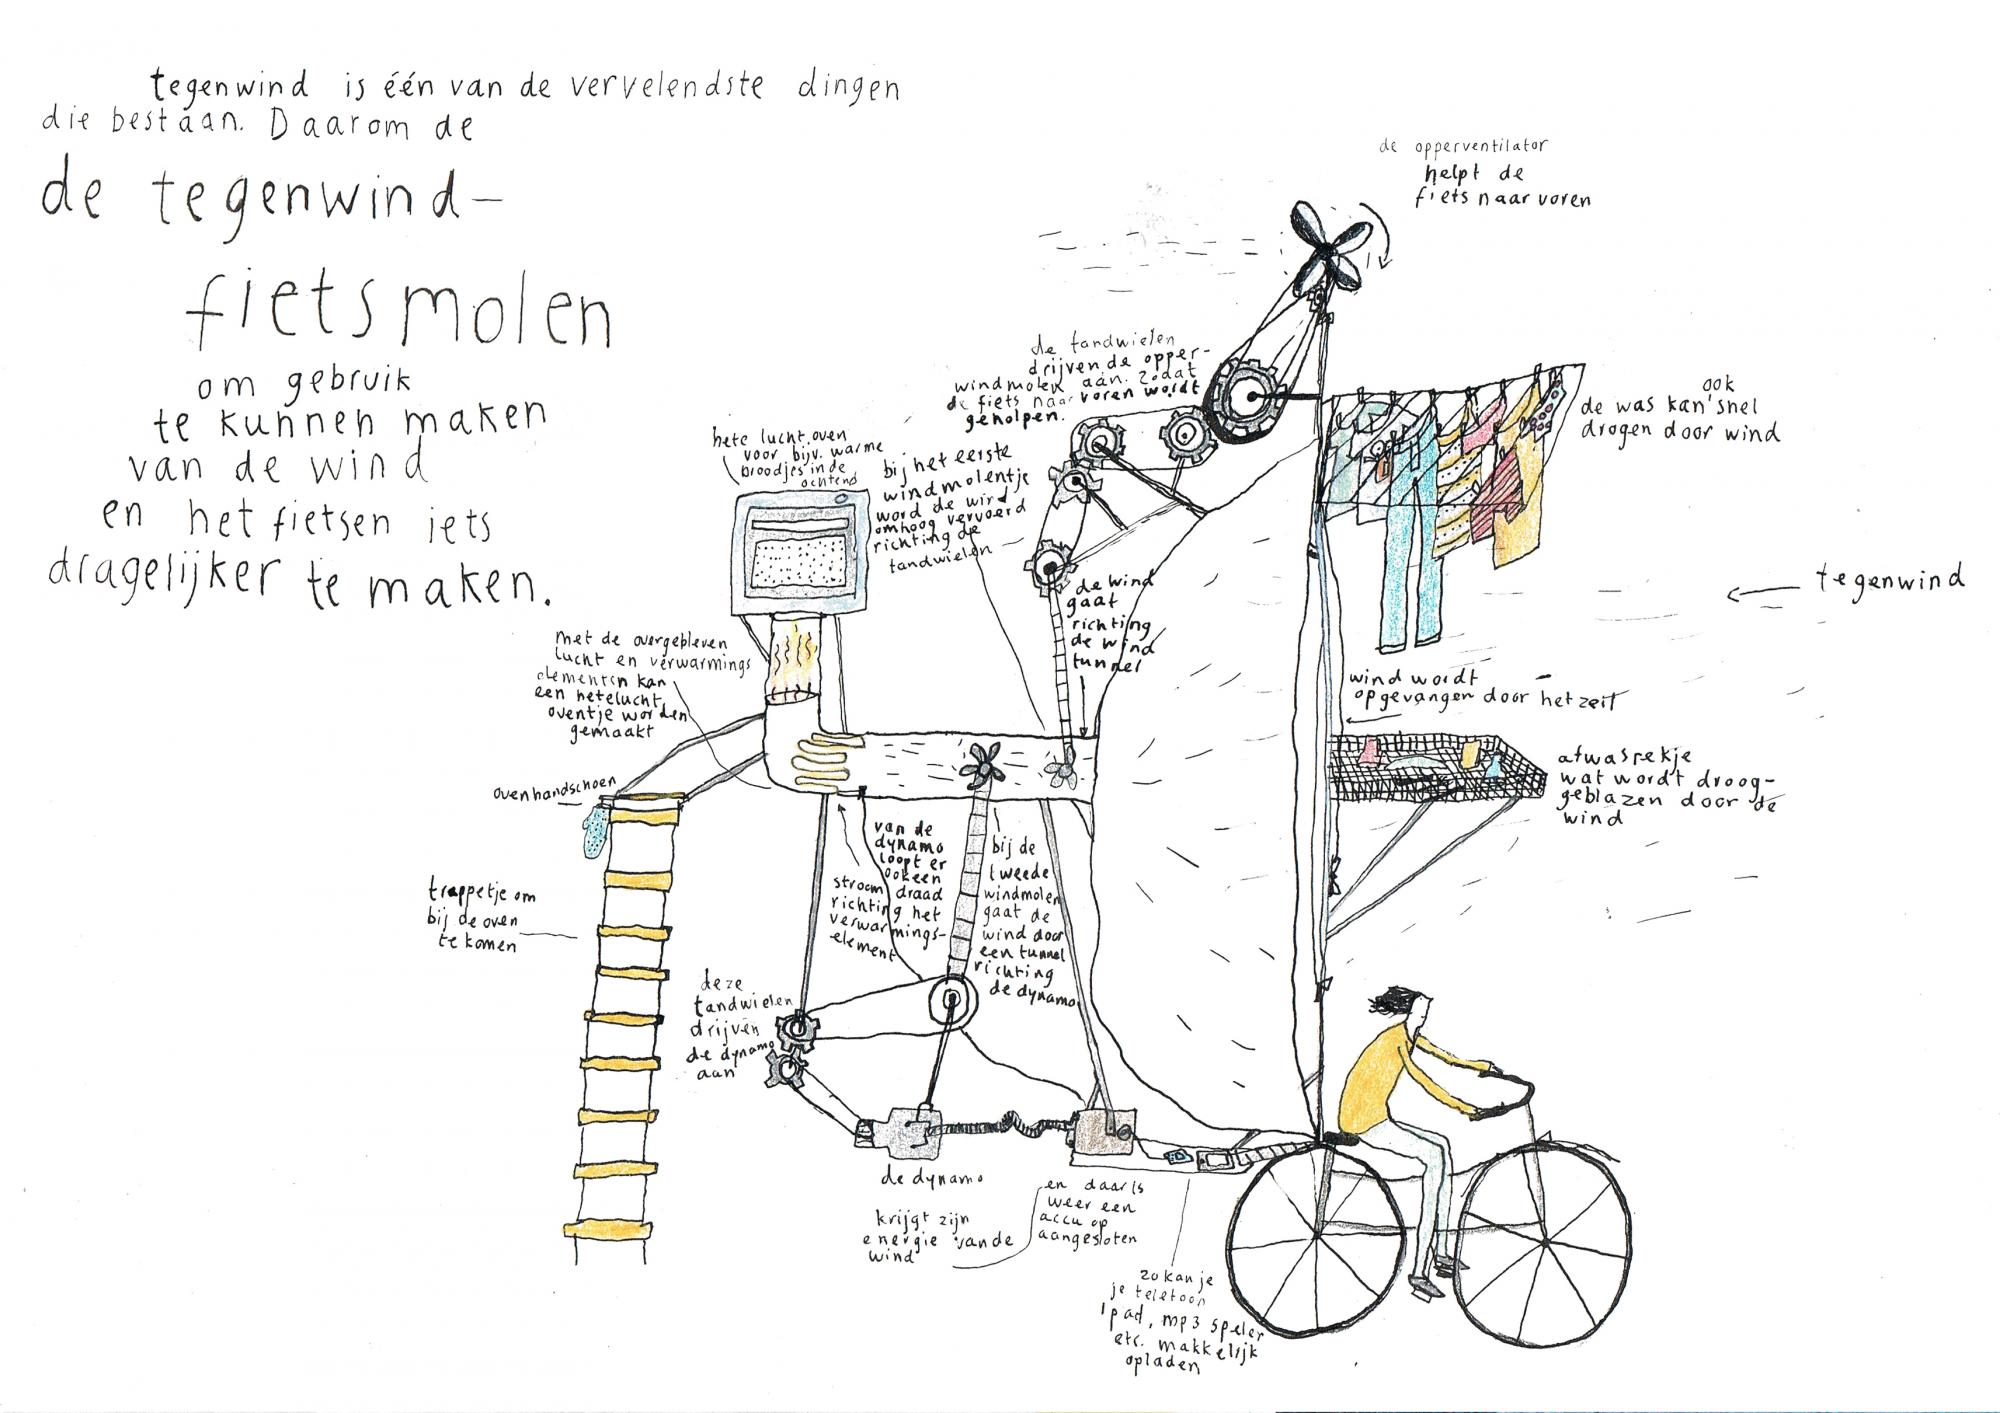 tegenwind is één van de vervelendste dingen
die bestaan. Daarom de
de tegenwind-
fietsmolen
om gebruik
te kunnen maken
van de wind
en het fietsen iets
dragelijker te maken.
de opperventilator
helpt de
fiets naar voren
de tandwielen
drijven de opper-
windmolen aan. zodat
de fiets naar voren wordt
geholpen.
ook
de was kan snel
drogen door wind
hete lucht oven
voor bijv. warme
broodjes in de
ochtend
bij het eerste
windmolentje
word de wird
omhoog vervoerd
richting de
tandwielen
de wind
gaat
richting
de wind
tunnel
tegenwind
met de overgebleven
lucht en verwarmings
elementen kan
een hetelucht
oventje worden
gemaakt
wind wordt
opgevangen door het zeil
ovenhandschoen
afwasrekje
wat wordt droog-
geblazen door de
wind
trappetje om
bij de oven
te komen
van de
dynamo
loopt er
ook een
stroom draad
richting het
verwarmings-
element
bij de
tweede
windmolen
gaat de
wind door
een tunnel
richting
de dynamo
deze
tandwielen
drijven
de dynamo
aan
de dynamo
krijgt zijn
energie van de
wind
en daar is
weer een
accu op
aangesloten
zo kan je
je telefoon
ipad, mp3 speler
etc. makkelijk
opladen